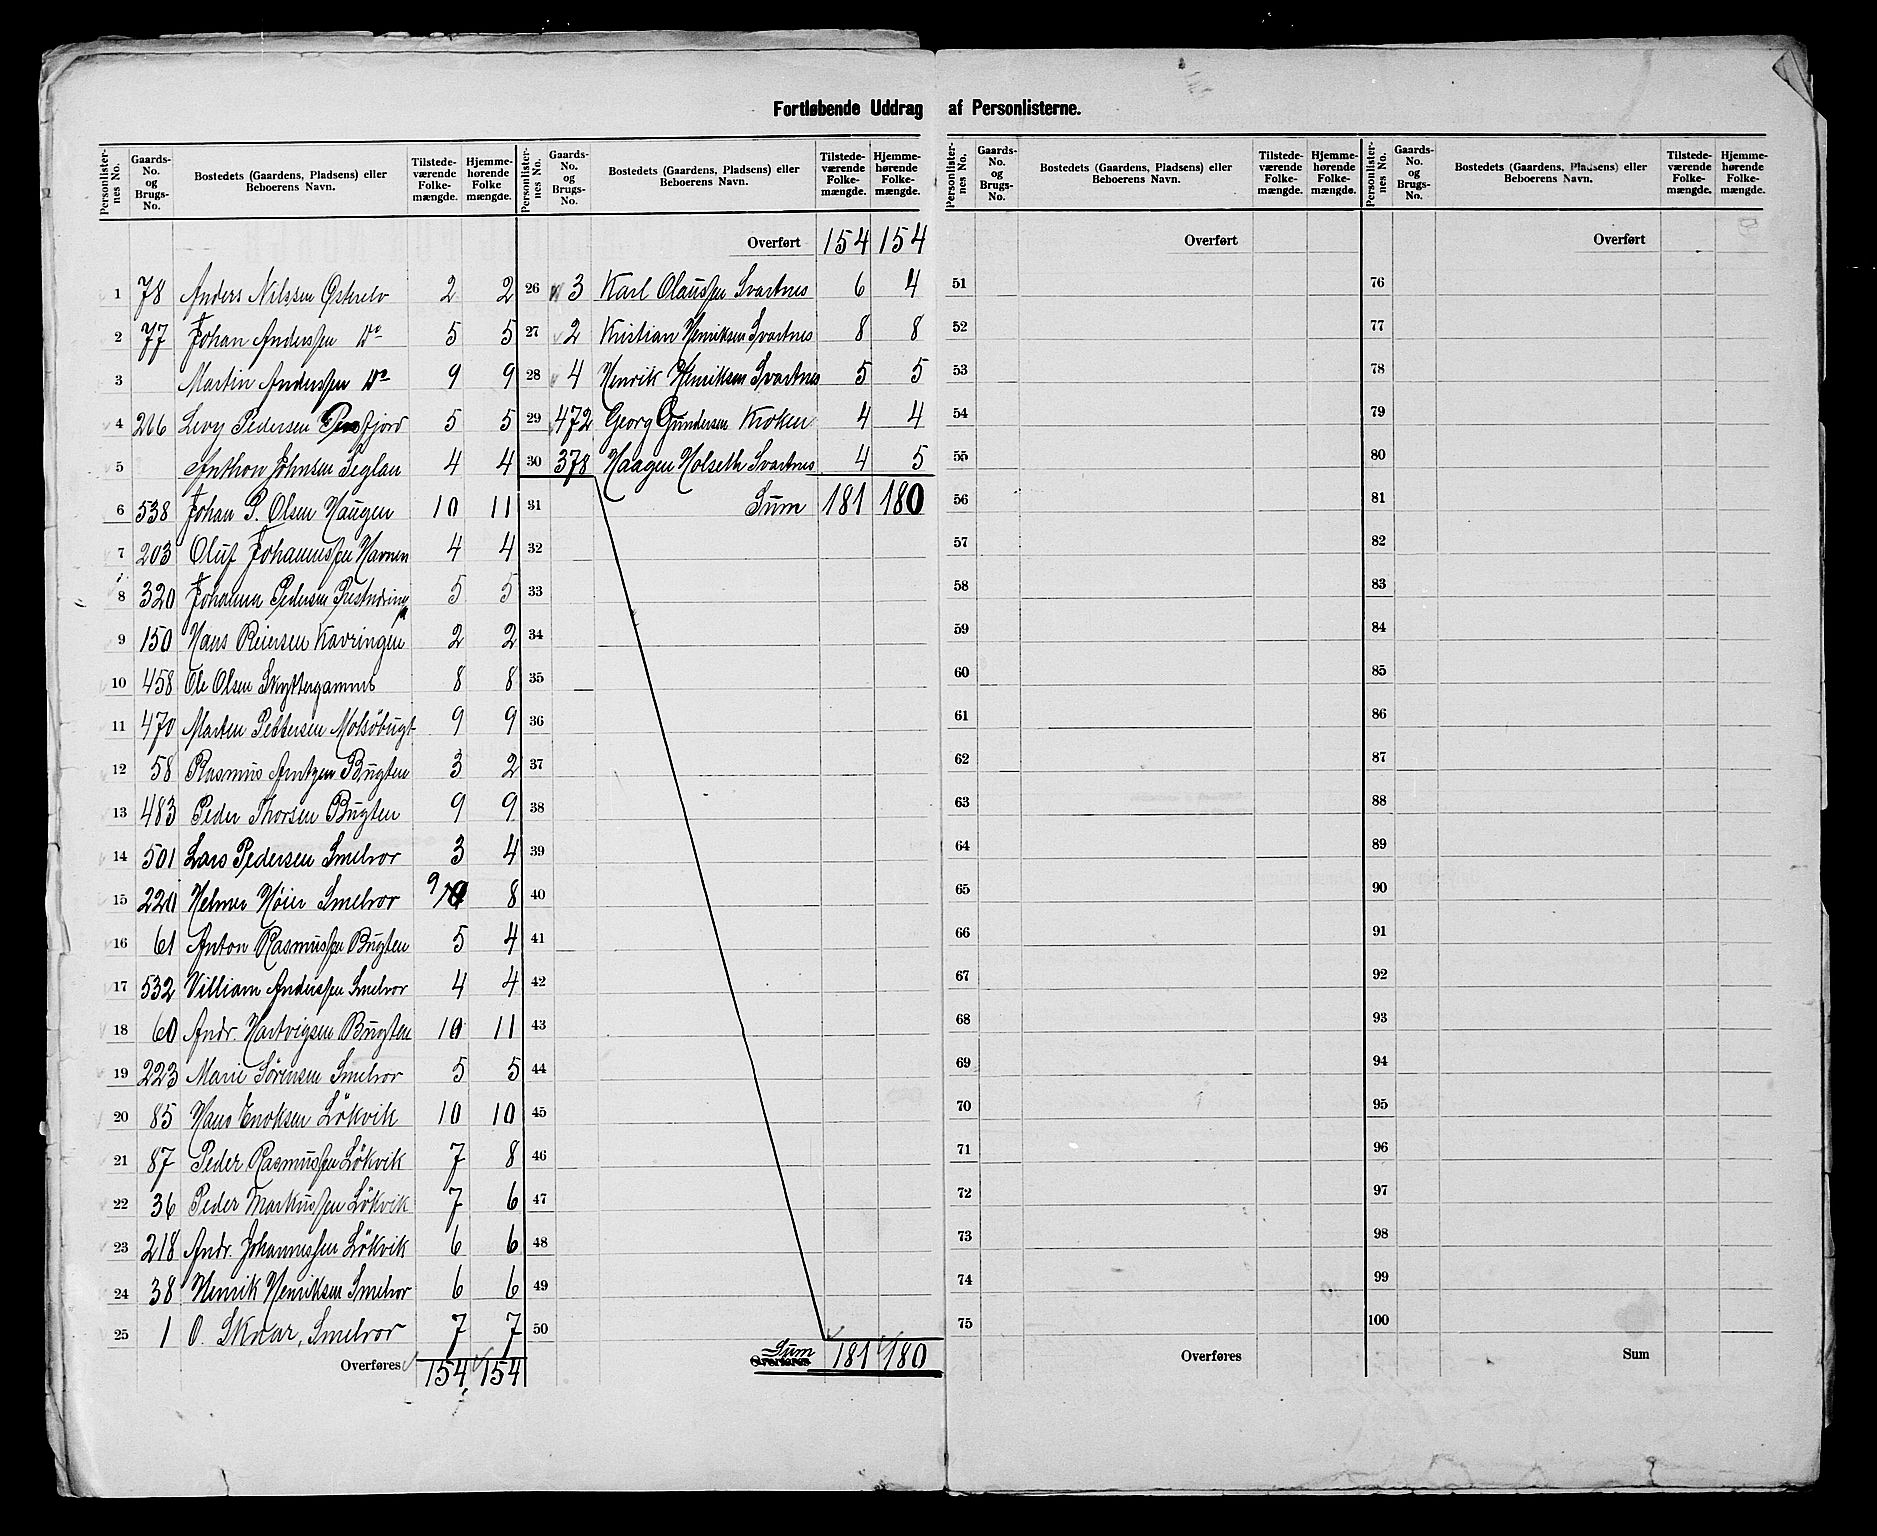 Fortløbende Uddrag af Personlisterne.
Personlister-nes No. Gaards-No. og Brugs-No. Bostedets (Gaardens, Pladsen) eller Beboerens Navn. Tilstede-værende Folke-mængde. Hjemme-hørende Folke mængde.
1 78 Anders Nilssen Østrelv 2 2
2 77 Johan Anderssen Do 5 5
3 Martin Anderssen Do 9 9
4 266 Levy Pedersen Persfjord 5 5
5 Anthon Johnsen Seglan 4 4
6 538 Johan P. Olsen Haugen 10 11
7 203 Oluf Johannessen Havnen 4 4
8 320 Johanna Pedersen 5 5
9 150 Hans Reiersen Kavringen 2 2
10 458 Ole Olsen Skyttergammo 8 8
11 470 Marten Pettersen Molsöbugt 9 9
12 58 Rasmus Arntzen Bugten 3 2
13 483 Peder Thorsen Bugten 9 9
14 501 Lars Pedersen Smelror 3 4
15 220 Helmer Høier Smelror 9 8
16 61 Anton Rasmussen Bugten 5 4
17 532 Villiam Anderssen Smelror 4 4
18 60 Andr. Hartvigsen Bugten 10 11
19 223 Marie Sørensen Smelror 5 5
20 85 Hans Enoksen Lökvik 10 10
21 87 Peder Rasmussen Lökvik 7 8
22 36 Peder Markussen Lökvik 7 6
23 218 Andr. Johannessen Lökvik 6 6
24 38 Henrik Henriksen Smelror 6 6
25 1 O. Sknar, Smelror 7 7
Overføres 154 154
Personlister-nes No. Gaards-No. og Brugs-No. Bostedets (Gaardens, Pladsen) eller Beboerens Navn. Tilstede-værende Folke-mængde. Hjemme-hørende Folke-mængde.
Overført 154 154
26 3 Karl Olaussen Svartnes 6 4
27 2 Kristian Henriksen Svartnes 8 8
28 4 Henrik Henriksen Svartnes 5 5
29 472 Georg Gundersen Kroken 4 4
30 378 Haagen Holseth Svartnes 4 5
31 Sum 181 180
32
33
34
35
36
37
38
39
40
41
42
43
44
45
46
47
48
49
50
Sum
Overføres 181 180
Personlister-nes No. Gaards-No. og Brugs-No. Bostedets (Gaardens, Pladsens) eller Beboerens Navn. Tilstede-værende Folke-mængde. Hjemme-hørende Folke-mængde.
Overført
51
52
53
54
55
56
57
58
59
60
61
62
63
64
65
66
67
68
69
70
71
72
73
74
75
Overføres
Personlister-nes No. Gaards-No. og Brugs-No. Bostedets (Gaardens, Pladsens) eller Beboerens Navn. Tilstede-værende Folke-mængde. Hjemme-hørende Folke-mængde.
Overført
76
77
78
79
80
81
82
83
84
85
86
87
88
89
90
91
92
93
94
95
96
97
98
99
100
Sum